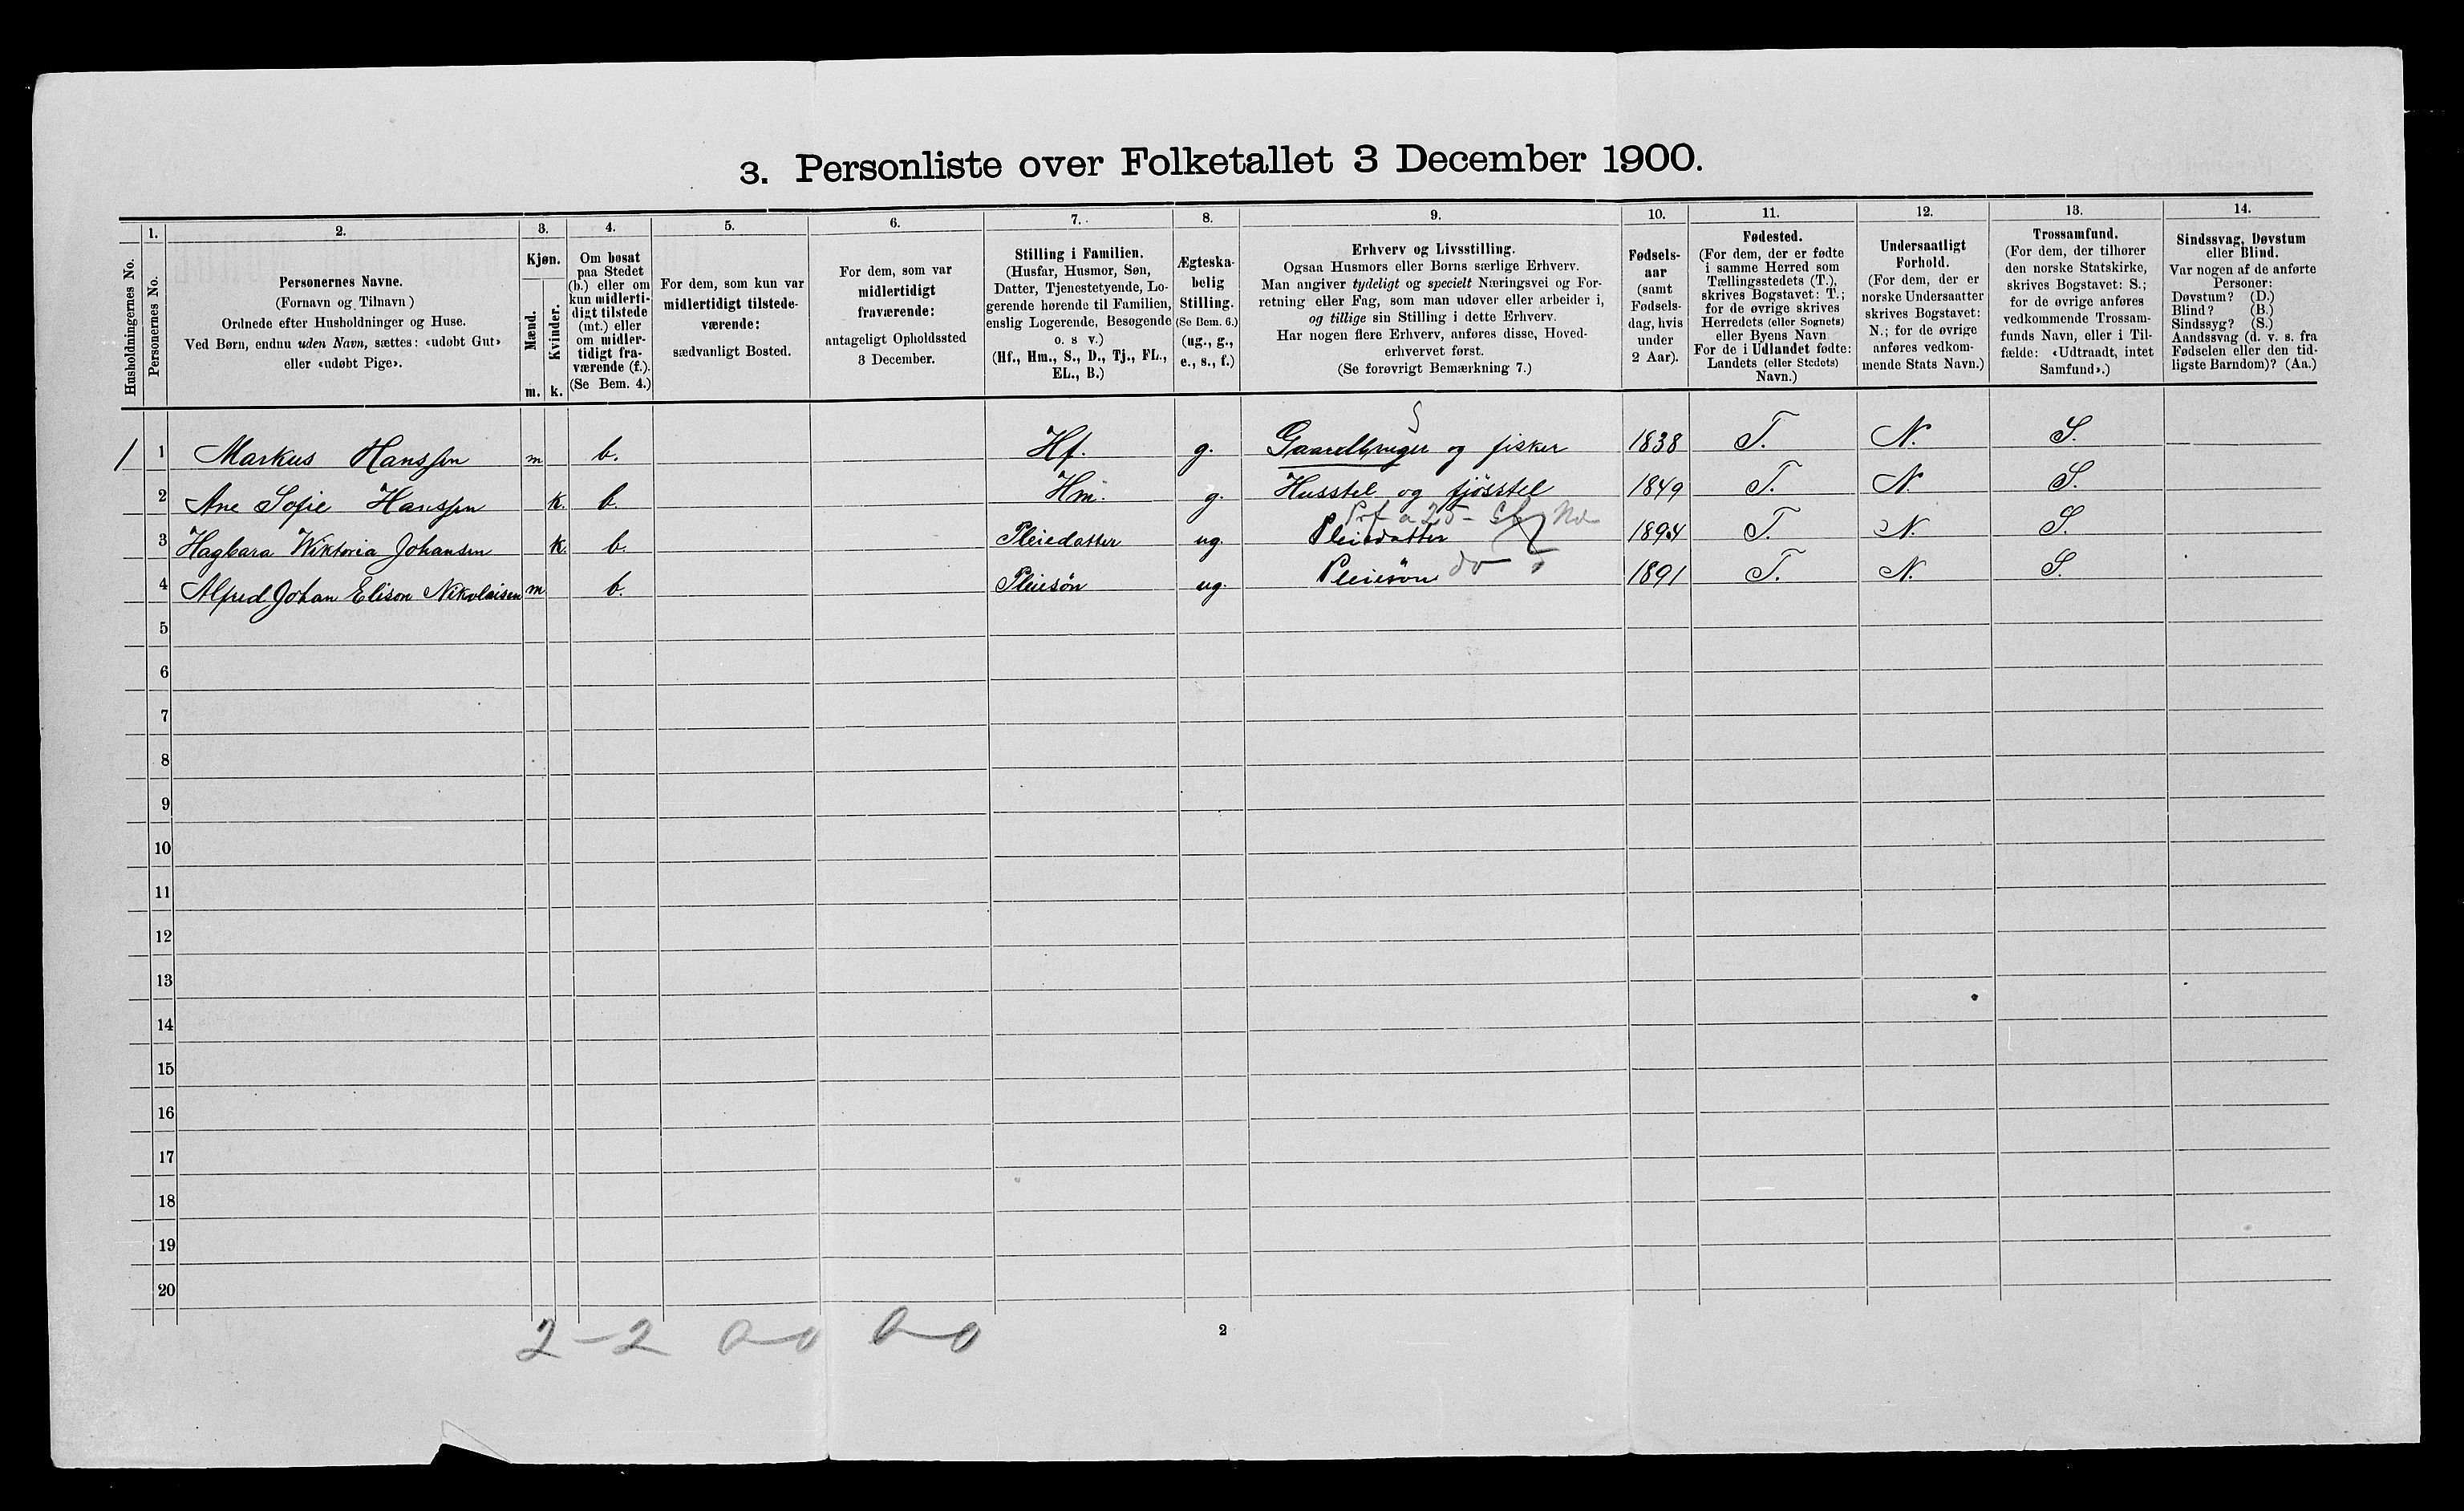 3. Personliste over Folketallet 3 December 1900.
Husholdningernes No.
1.
Personernes No.
2.
Personernes Navne.
(Fornavn og Tilnavn)
Ordnede efter Husholdninger og Huse.
Ved Børn, endnu uden Navn, sættes: «udøbt Gut»
eller «udøbt Pige».
3.
Kjøn.
Mænd.
Kvinder.
m. k.
4.
Om bosat
paa Stedet
(b.) eller om
kun midlerti-
digt tilstede
(mt.) eller
om midler-
tidigt fra-
værende (f.).
(Se Bem. 4.)
5.
For dem, som kun var
midlertidigt tilstede-
værende:
sædvanligt Bosted.
6.
For dem, som var
midlertidigt
fraværende:
antageligt Opholdssted
3 December.
7.
Stilling i Familien.
(Husfar, Husmor, Søn,
Datter, Tjenestetyende, Lo-
gerende hørende til Familien,
enslig Logerende, Besøgende
o. s v.)
(Hf., Hm., S., D., Tj., FL.,
EL., B.)
8.
Ægteska-
belig
Stilling.
(Se Bem. 6.)
(ug., g.,
e., s., f.)
9.
Erhverv og Livsstilling.
Ogsaa Husmors eller Børns særlige Erhverv.
Man angiver tydeligt og specielt Næringsvei og For-
retning eller Fag, som man udøver eller arbeider i,
og tillige sin Stilling i dette Erhverv.
Har nogen flere Erhverv, anføres disse, Hoved-
erhvervet først.
(Se forøvrigt Bemærkning 7.)
10.
Fødsels-
aar
(samt
Fødsels-
dag, hvis
under
2 Aar).
11.
Fødested.
(For dem, der er fødte
i samme Herred som
Tællingsstedets (T.),
skrives Bogstavet: T.;
for de øvrige skrives
Herredets (eller Sognets)
eller Byens Navn
For de i Udlandet fødte:
Landets (eller Stedets)
Navn.)
12.
Undersaatligt
Forhold.
(For dem, der er
norske Undersaatter
skrives Bogstavet:
N.; for de øvrige
anføres vedkom-
mende Stats Navn.)
13.
Trossamfund.
(For dem, der tilhører
den norske Statskirke,
skrives Bogstavet: S.;
for de øvrige anføres
vedkommende Trossam-
funds Navn, eller i Til-
fælde: «Udtraadt, intet
Samfund».)
14.
Sindssvag, Døvstum
eller Blind.
Var nogen af de anførte
Personer:
Døvstum? (D.)
Blind? (B.)
Sindssyg? (S.)
Aandssvag (d. v. s. fra
Fødselen eller den tid-
ligste Barndom)? (Aa.)
1 1 Markus Hanssen m b. Hf. g. Gaardbruger og fisker 1838 T. N. S.
2 Ane Sofie Hanssen k. b. Hm. g. Husstel og fjøsstel 1849 T. N. S.
3 Hagbara Wiktoria Johansen k. b. Pleiedatter ug. Pleiedatter 1894 T. N. S.
4 Alfred Johan Elison Nikolaisen m b. Pleiesøn ug. Pleiesøn do 1891 T. N. S.
5
6
7
8
9
10
11
12
13
14
15
16
17
18
19
20
2-2 0-0 0-0
2